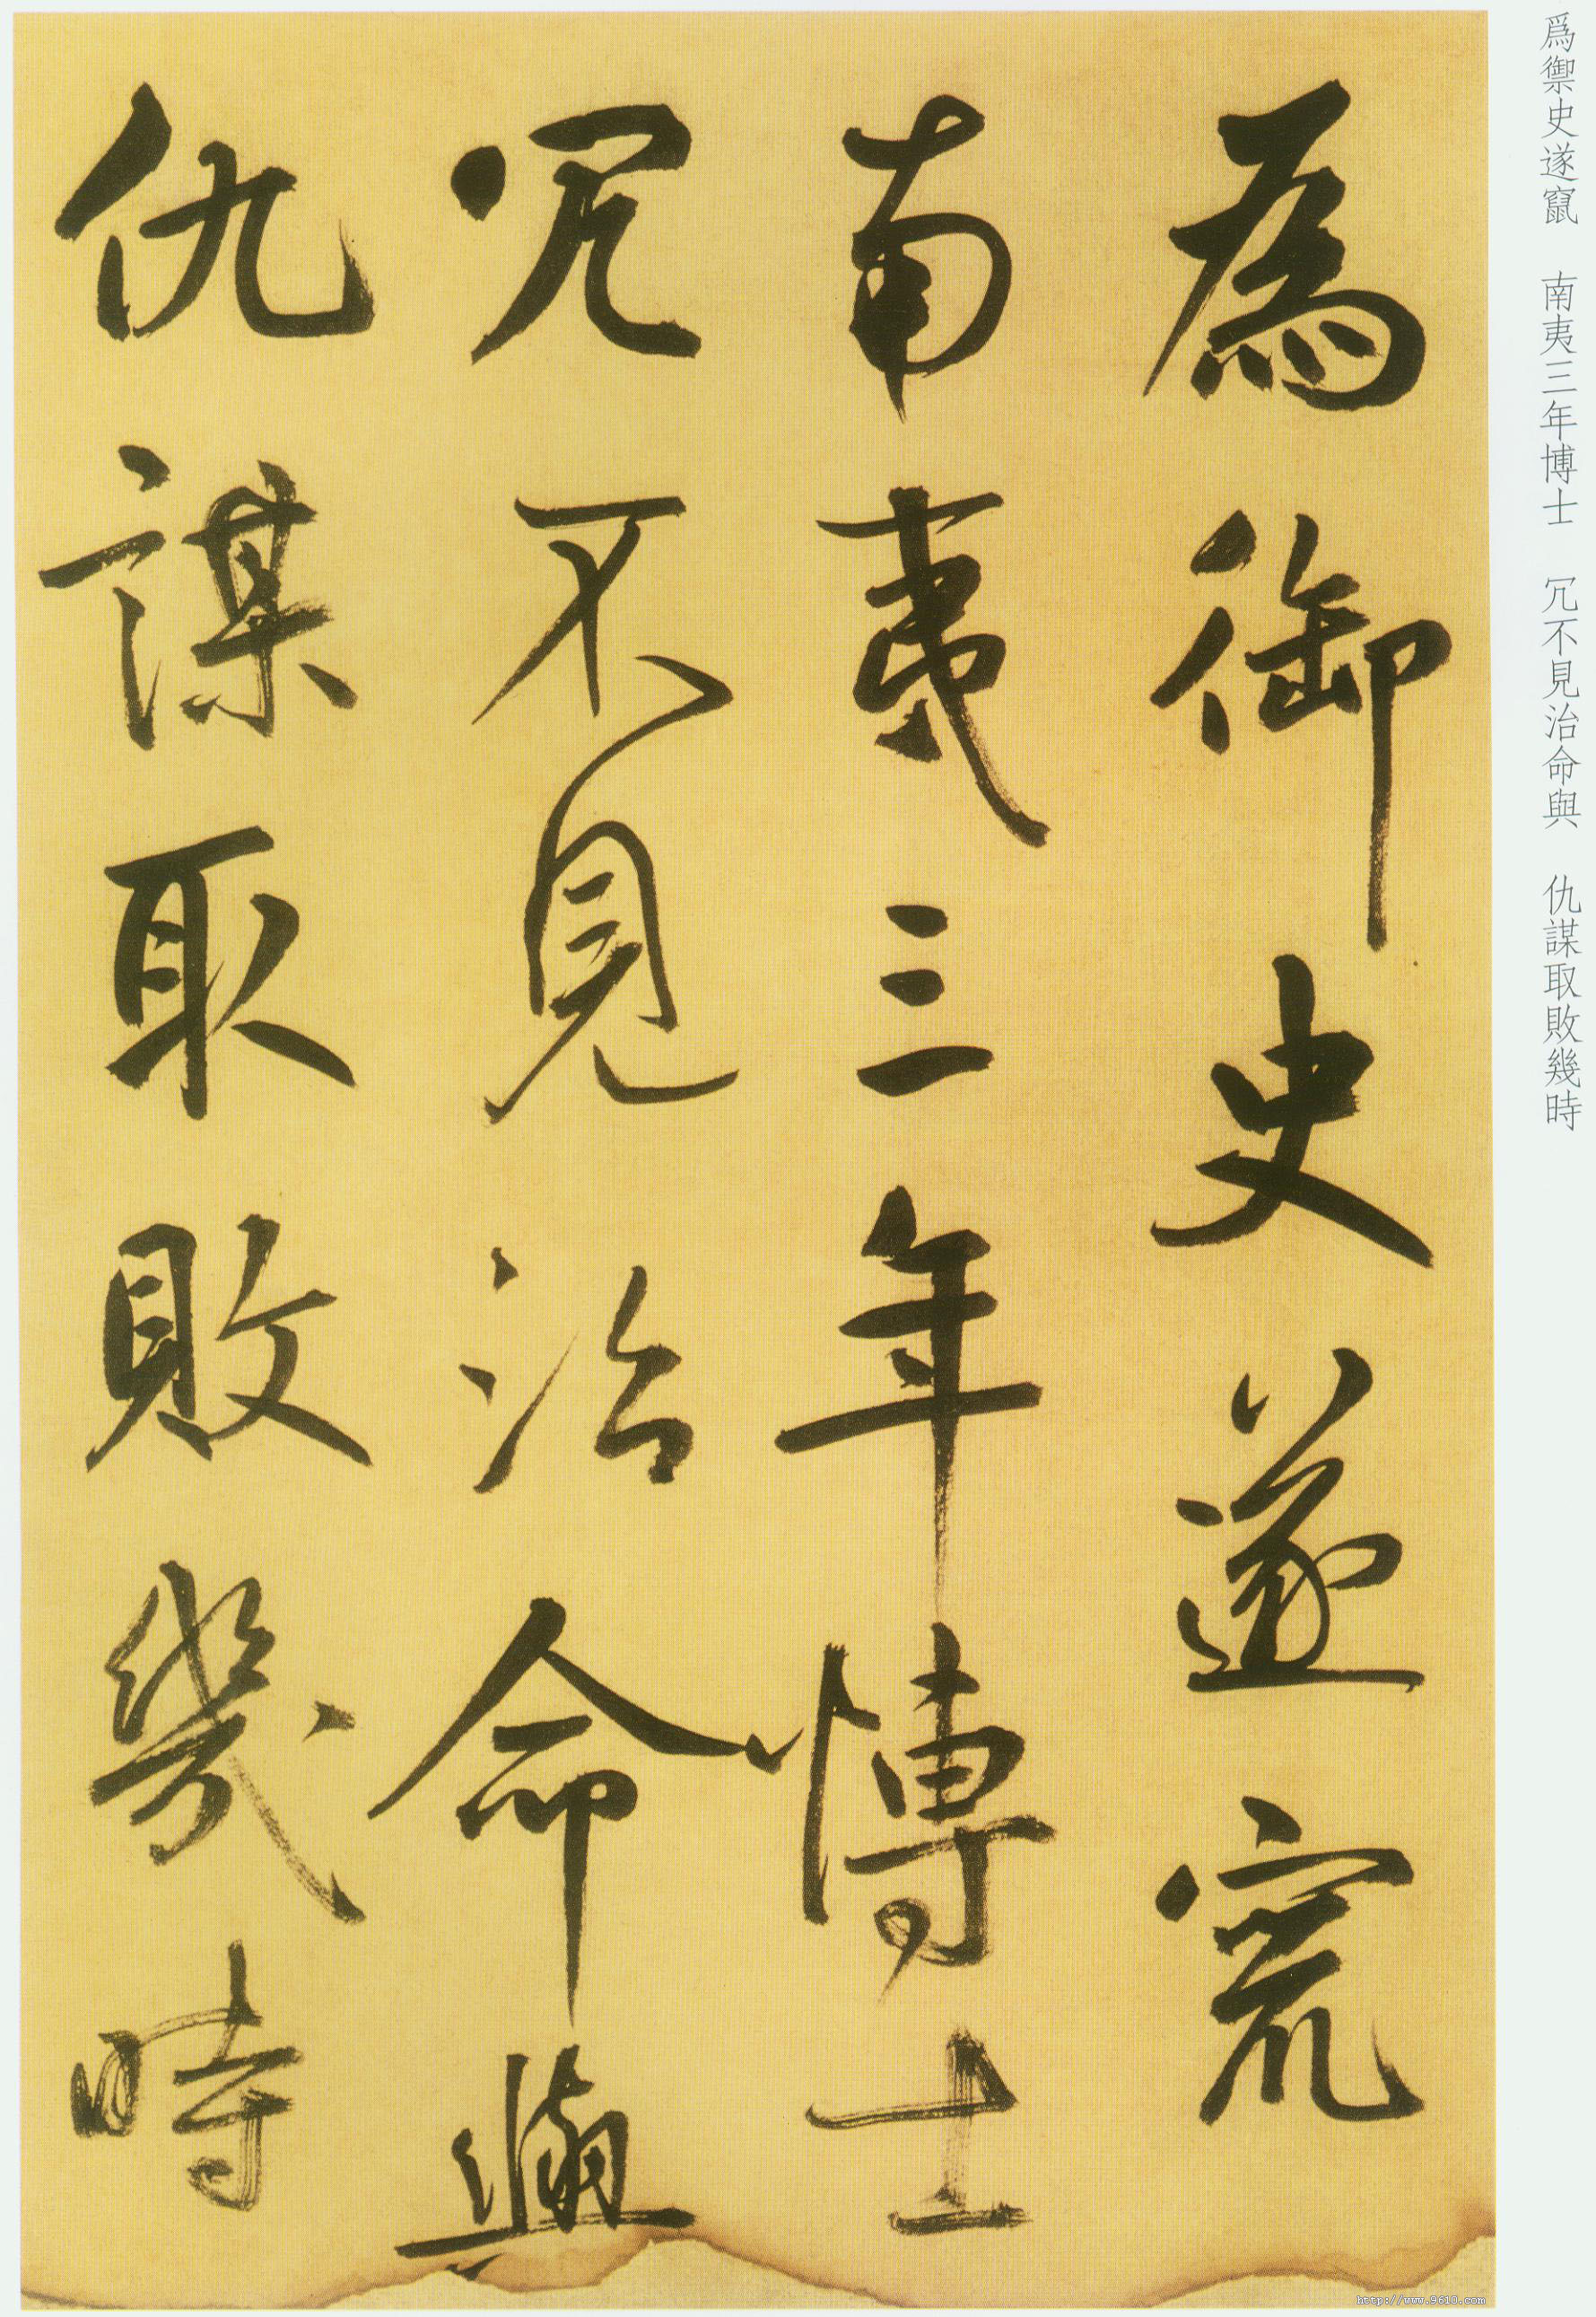 為御史遂竄
南夷三年博士
冗不見治命與
仇謀取敗幾時
爲禦史遂竄 南夷三年博士 冗不見治命與 仇謀取敗幾時
http://www.9610.com